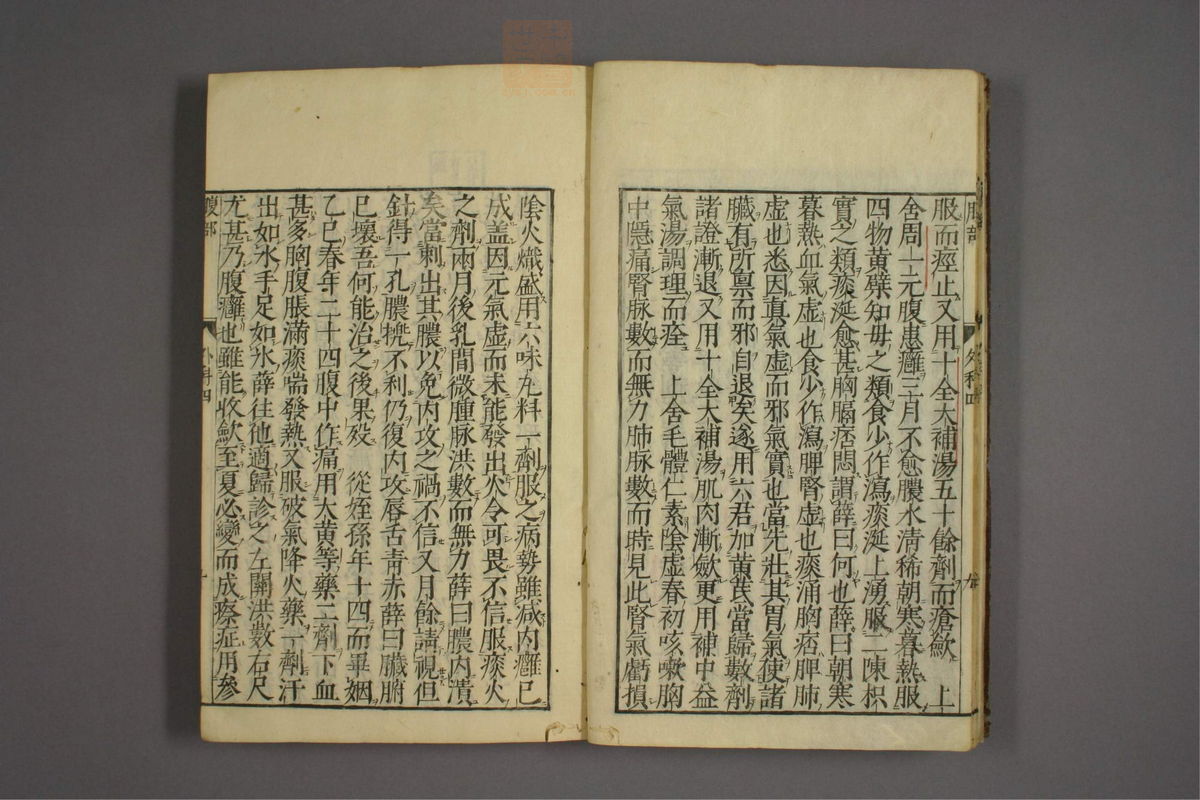 服而痙止又用十全大補湯五十餘劑而瘡歛　上
舍周一元腹患癰三月不愈膿水清稀朝寒暮熱服
四物黃檗知毋之類食少作瀉痰涎上湧服二陳枳
實之類痰涎愈甚胸膈痞悶謂薛曰何也薛曰朝寒
暮熱血氣虚也食少作瀉脾腎虚也痰涌胸痞脾肺
虚也悉因真氣虚而邪氣實也當先壯其胃氣使諸
臟有所禀而邪自退矣遂用六君加黃芪當歸數劑
諸證漸退又用十全大補湯肌肉漸歛更用補中益
氣湯調理而痊　上舍毛體仁素陰虚春初咳嗽胸
中隱痛腎脉數而無力肺脉數而時見此腎氣虧損
陰火熾盛用六味丸料一劑服之病勢雖减内癰已
成盖因元氣虚而未能發出火令可畏不信服痰火
之劑兩月後乳間微腫脉洪數而無力薛曰膿内潰
矣當刺出其膿以免内攻之禍不信又月餘請視但
針得一孔膿㨪不利仍復内攻唇舌青赤薛曰臟腑
已壞吾何能治之後果歿　從姪孫年十四而畢姻
乙巳春年二十四腹中作痛用大黃等藥二劑下血
甚多胸腹脹滿痰喘發熱又服破氣降火藥一劑汗
出如水手足如氷薛往他適歸診之左關洪数右尺
尤甚乃腹癰也雖能收歛至夏必變而成瘵症用參
腹部
外科四